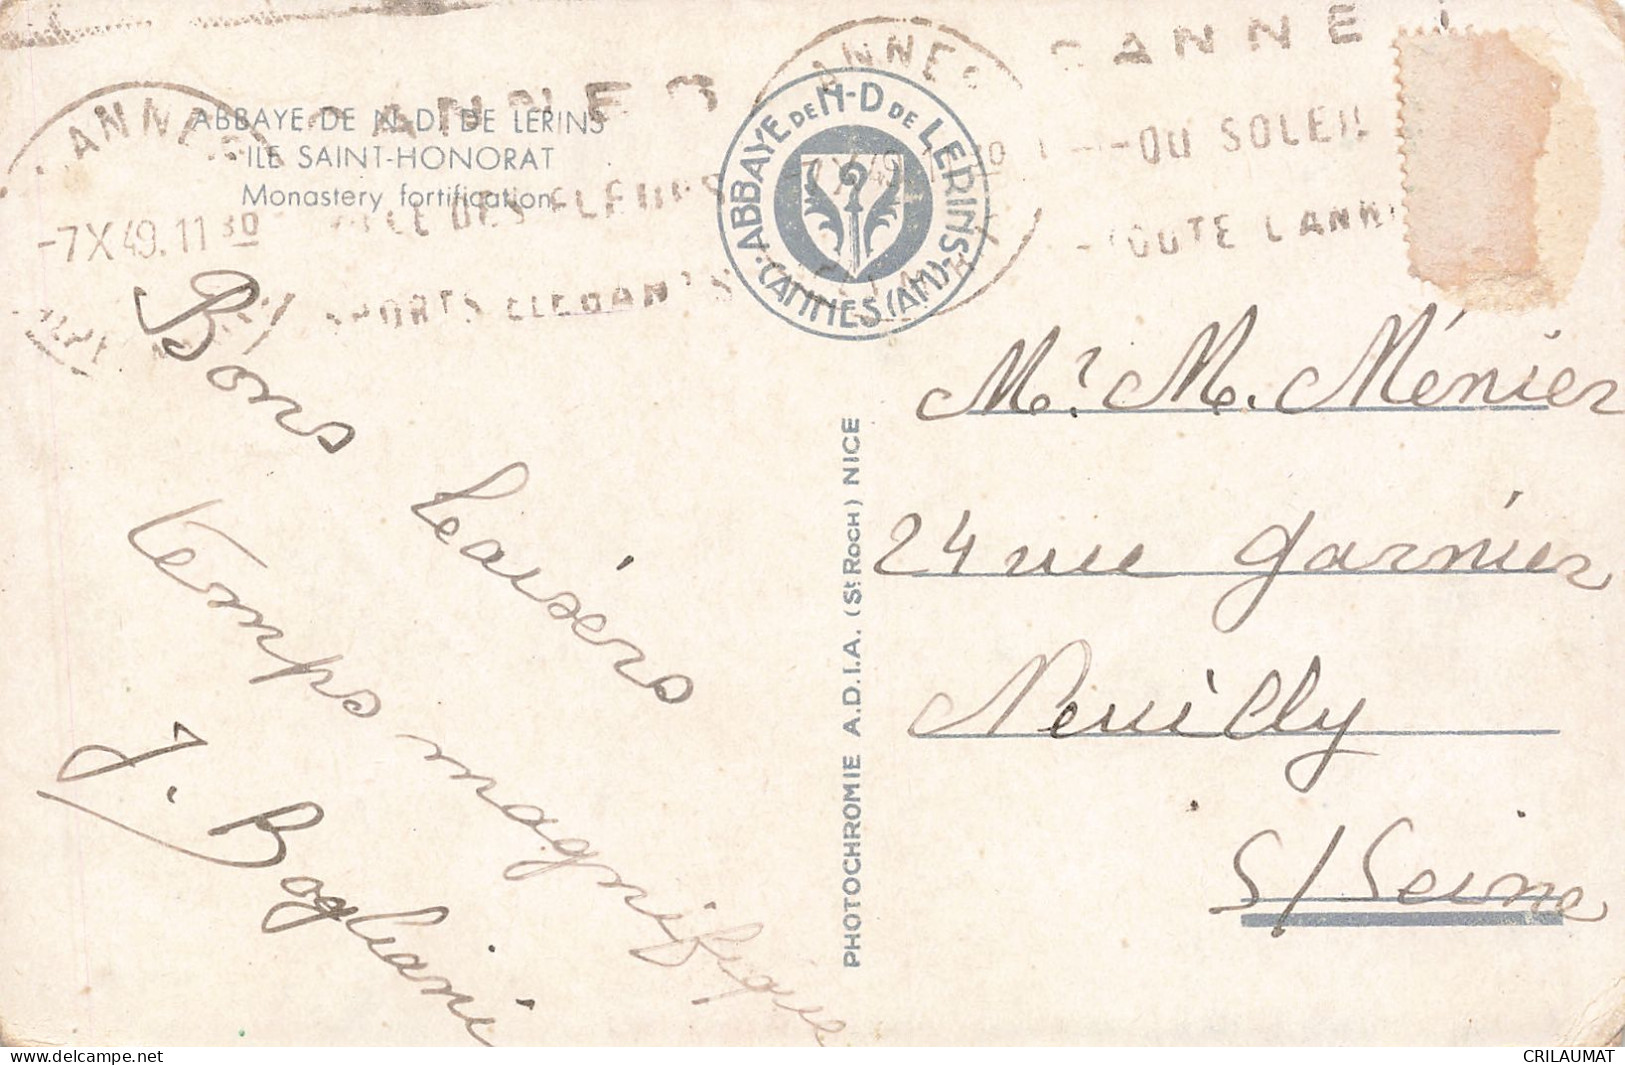 ABBAYE DE N.D. DE LERINS
ILE SAINT-HONORAT
Monastery fortification
CANNES
-7X49.1130
VILLE DES FLEURS
SPORTS ELEGANTS
ABBAYE DE N-D DE LERINS
CANNES (AM)
CANNES
DU SOLEIL
TOUTE L'ANN
Bons baisers
Temps magnifique
J. Bogliani
PHOTOCHROMIE A.D.I.A. (St ROCH) NICE
Mr. M. Ménier
24 rue Garnier
Neuilly
S/Seine
delcampe.net
CRILAUMAT